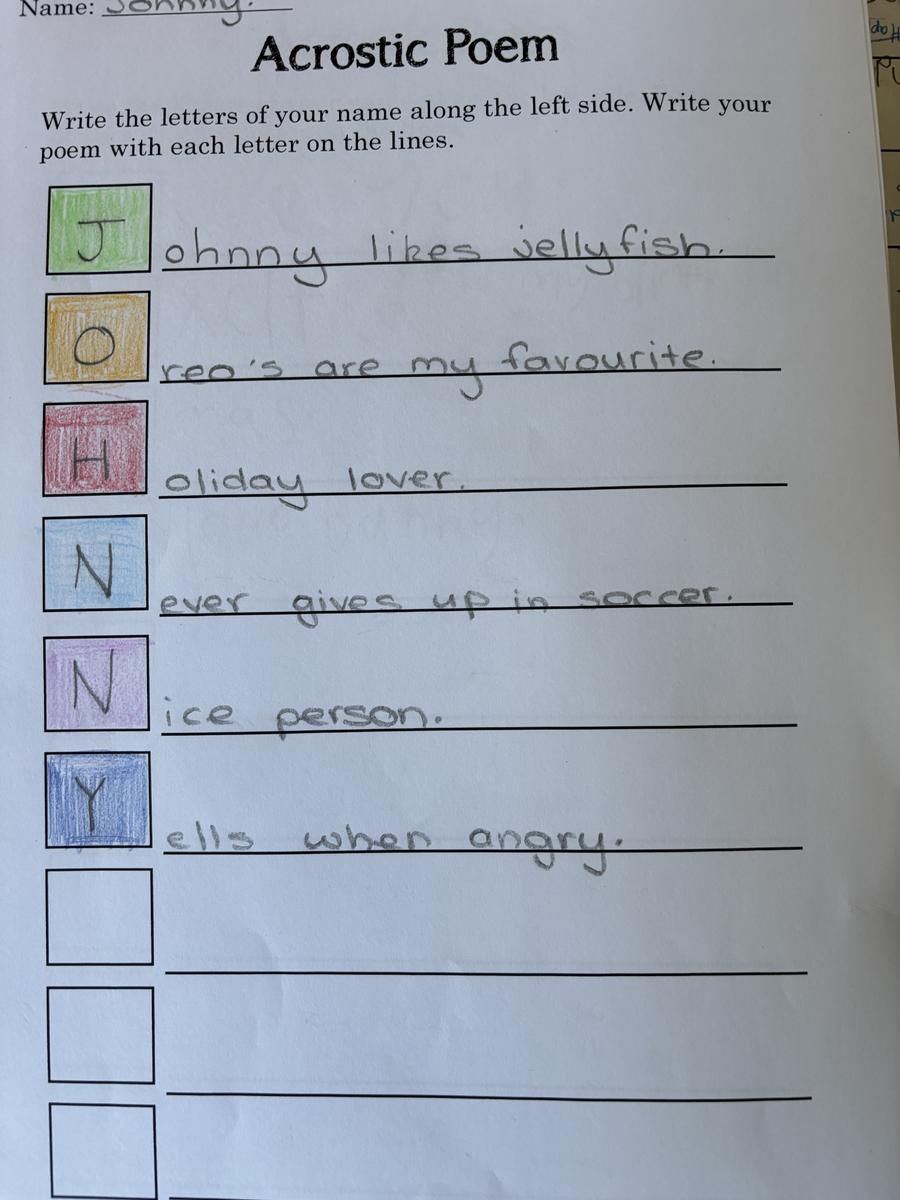 Name: Johnny.
Acrostic Poem
Write the letters of your name along the left side. Write your
poem with each letter on the lines.
Johnny likes jellyfish.
Oreo's are my favourite.
Holiday lover.
Never gives up in soccer.
Nice person.
Yells when angry.